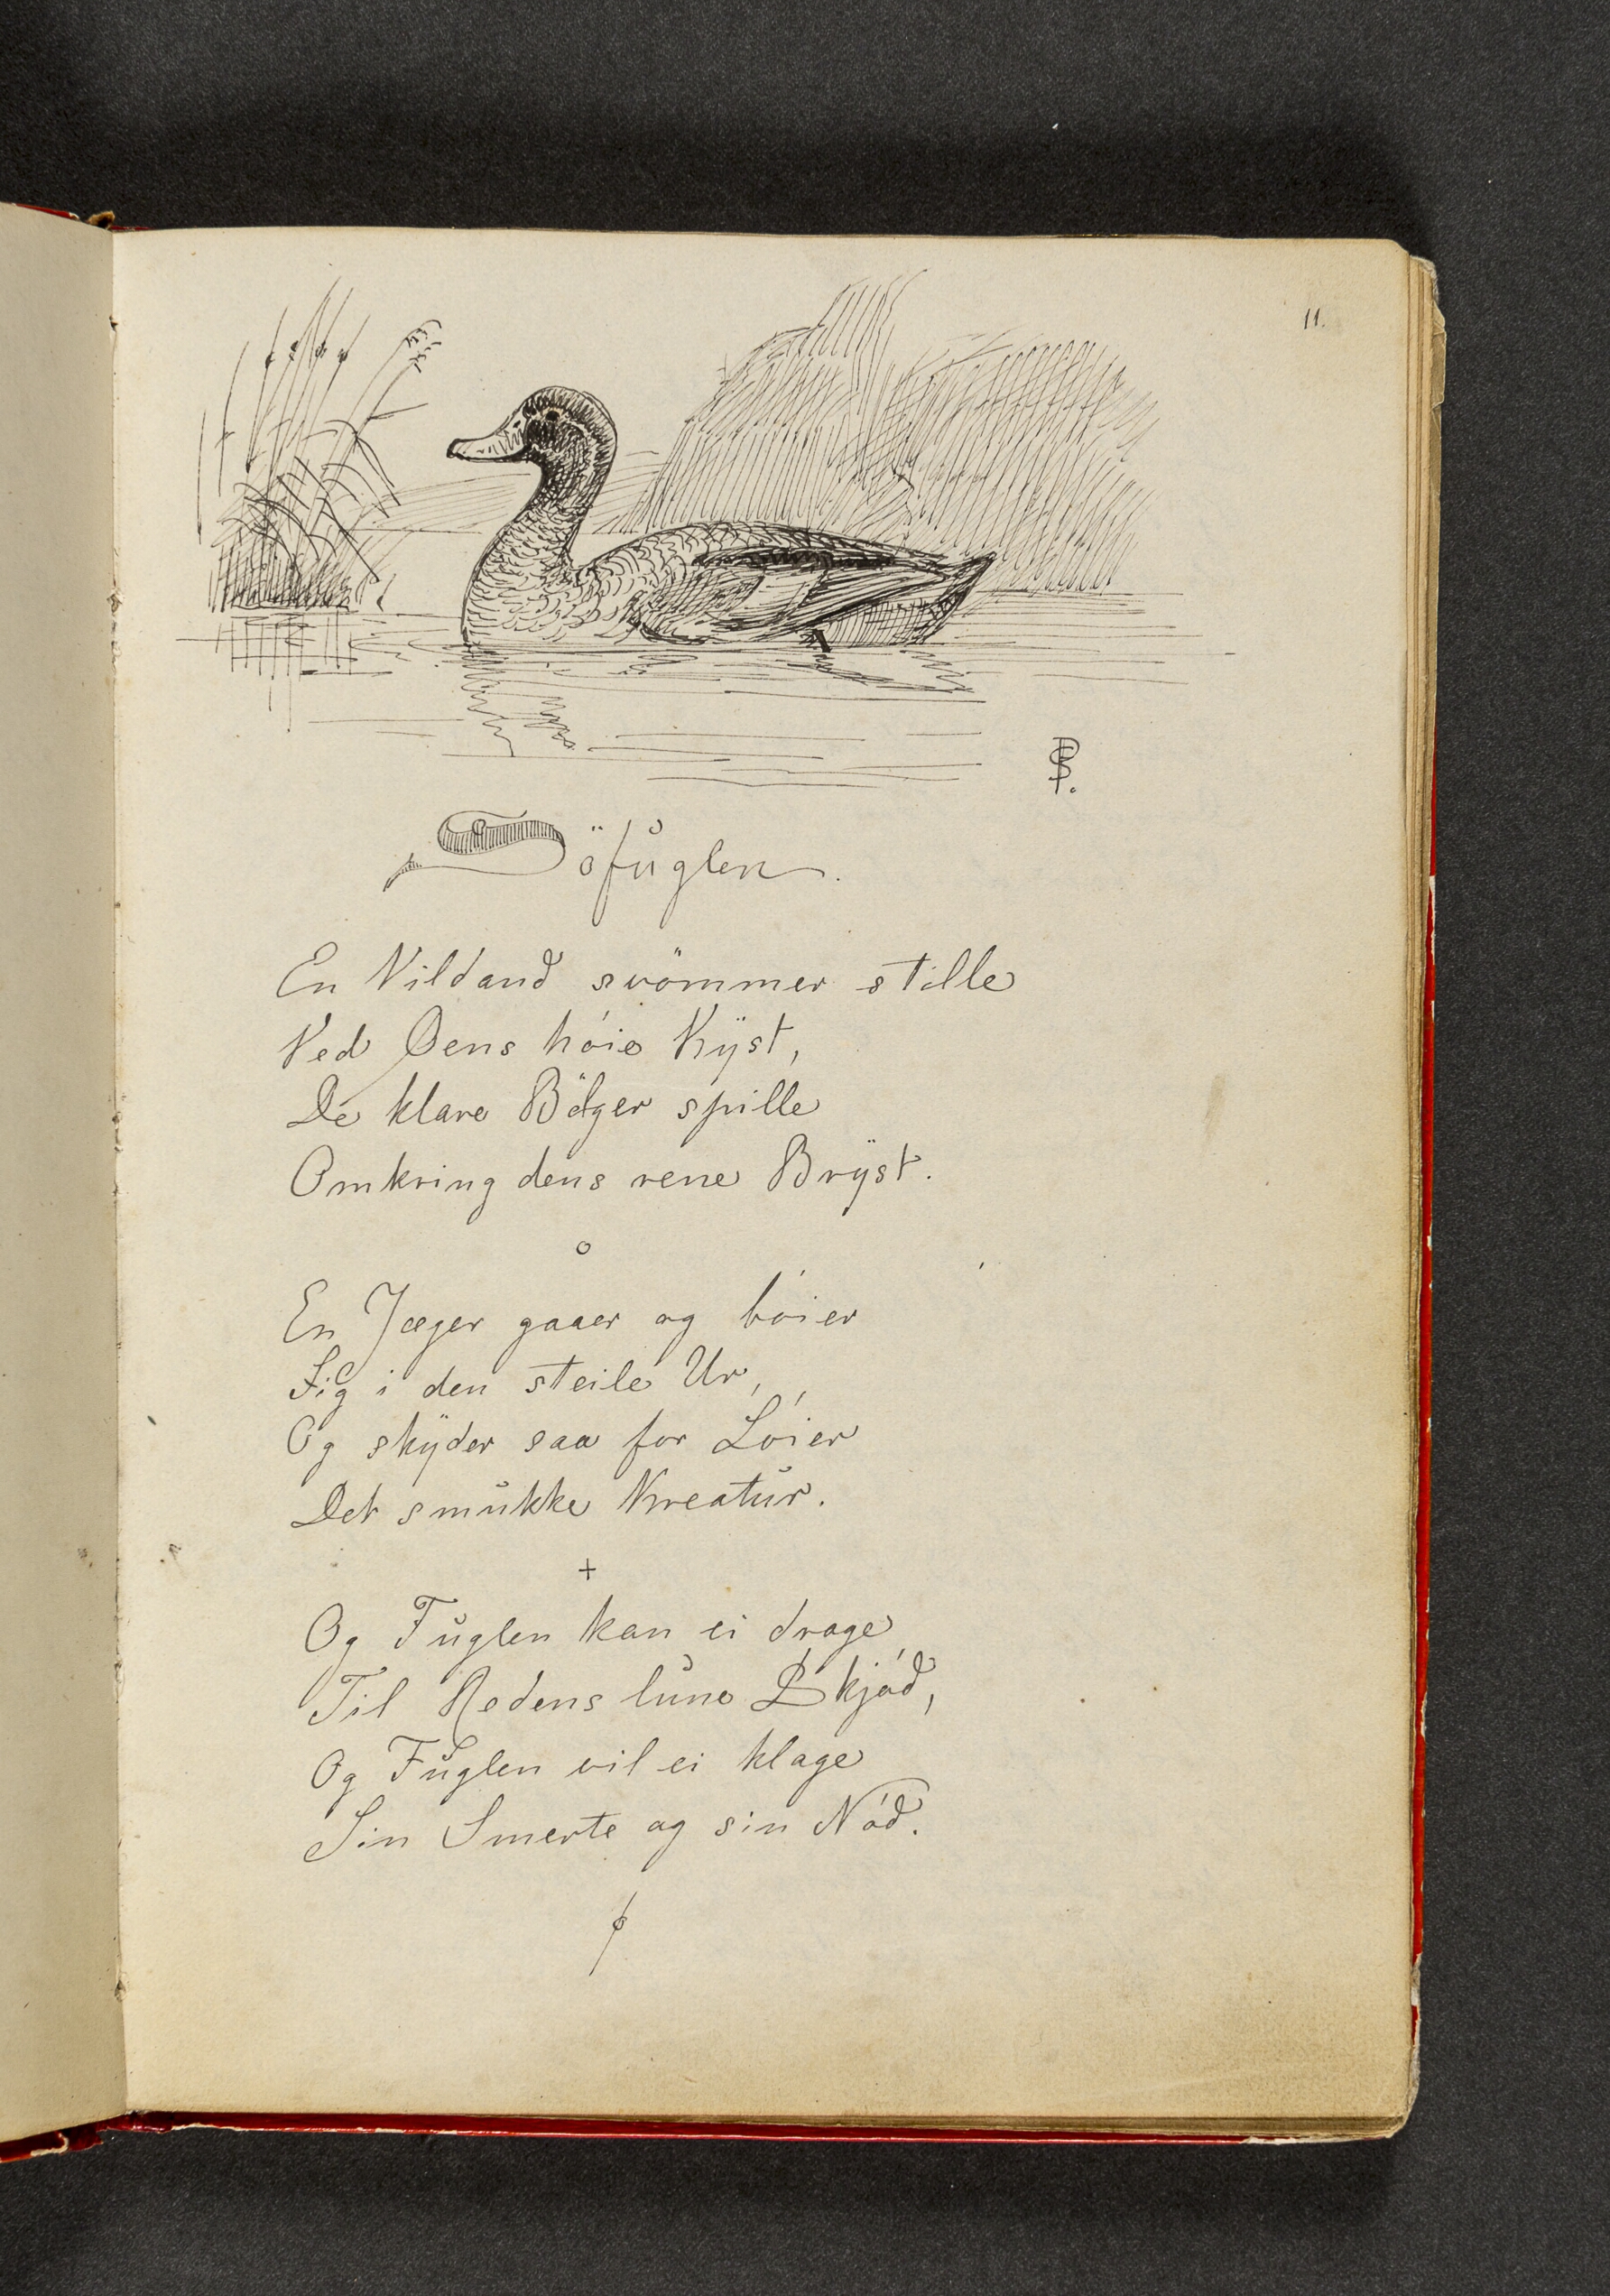 11.
Söfuglen.
En Vildand svömmer stille
Ved Øens höie Kyst,
De klare Bölger spille
Omkring dens rene Bryst.
En Jæger gaaer og böier
Sig i den steile Ur,
Og skyder saa for Löier
Det smukke Kreatur.
Og Fuglen kan ei drage
Til Redens lune Skjöd,
Og Fuglen vil ei klage
Sin Smerte og sin Nöd.